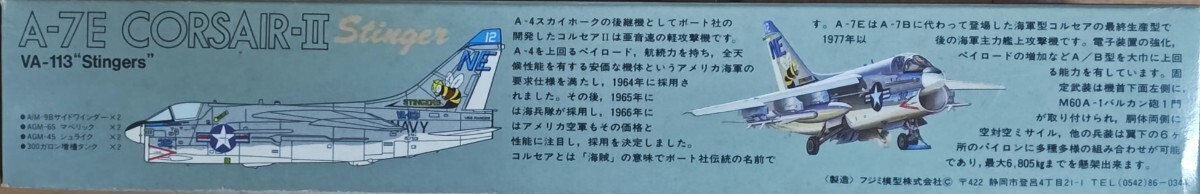 A-7E CORSAIR-II Stinger
VA-113“Stingers”
●AIM-9Bサイドワインダー×2
●AGM-65 マベリック ×2
●AGM-45 シュライク ×2
●300ガロン増槽タンク ×2
12
NE
STINGERS
NAVY
A-4スカイホークの後継機としてボート社の
開発したコルセアIIは亜音速の軽攻撃機です。
A-4を上回るペイロード，航続力を持ち，全天
候性能を有する安価な機体というアメリカ海軍の
要求仕様を満たし，1964年に採用さ
れました。その後，1965年に
は海兵隊が採用し，1966年に
はアメリカ空軍もその価格と
性能に注目し，採用を決定しました。
コルセアとは「海賊」の意味でボート社伝統の名前で
NE
す。A-7EはA-7Bに代わって登場した海軍型コルセアの最終生産型で
1977年以 後の海軍主力艦上攻撃機です。電子装置の強化，
ペイロードの増加などA／B型を大巾に上回
る能力を有しています。固
定武装は機首下面左側に，
M60A-1バルカン砲1門
が取り付けられ，胴体両側に
空対空ミサイル，他の兵装は翼下の6ヶ
所のパイロンに多種多様の組み合わせが可能
であり，最大6,805kgまでを懸架出来ます。
〈製造〉フジミ模型株式会社 © 〒422 静岡市登呂4丁目21-1 TEL(0542)86-034